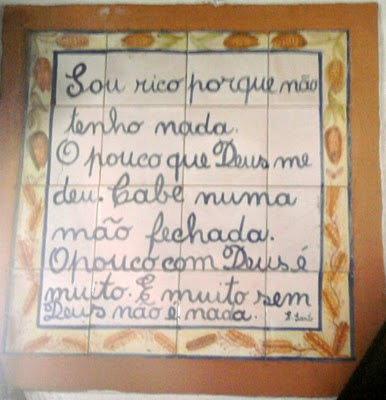 Sou rico porque não
tenho nada.
O pouco que Deus me
deu. Cabe numa
mão fechada.
O pouco com Deus é
muito. E muito sem
Deus não é nada.